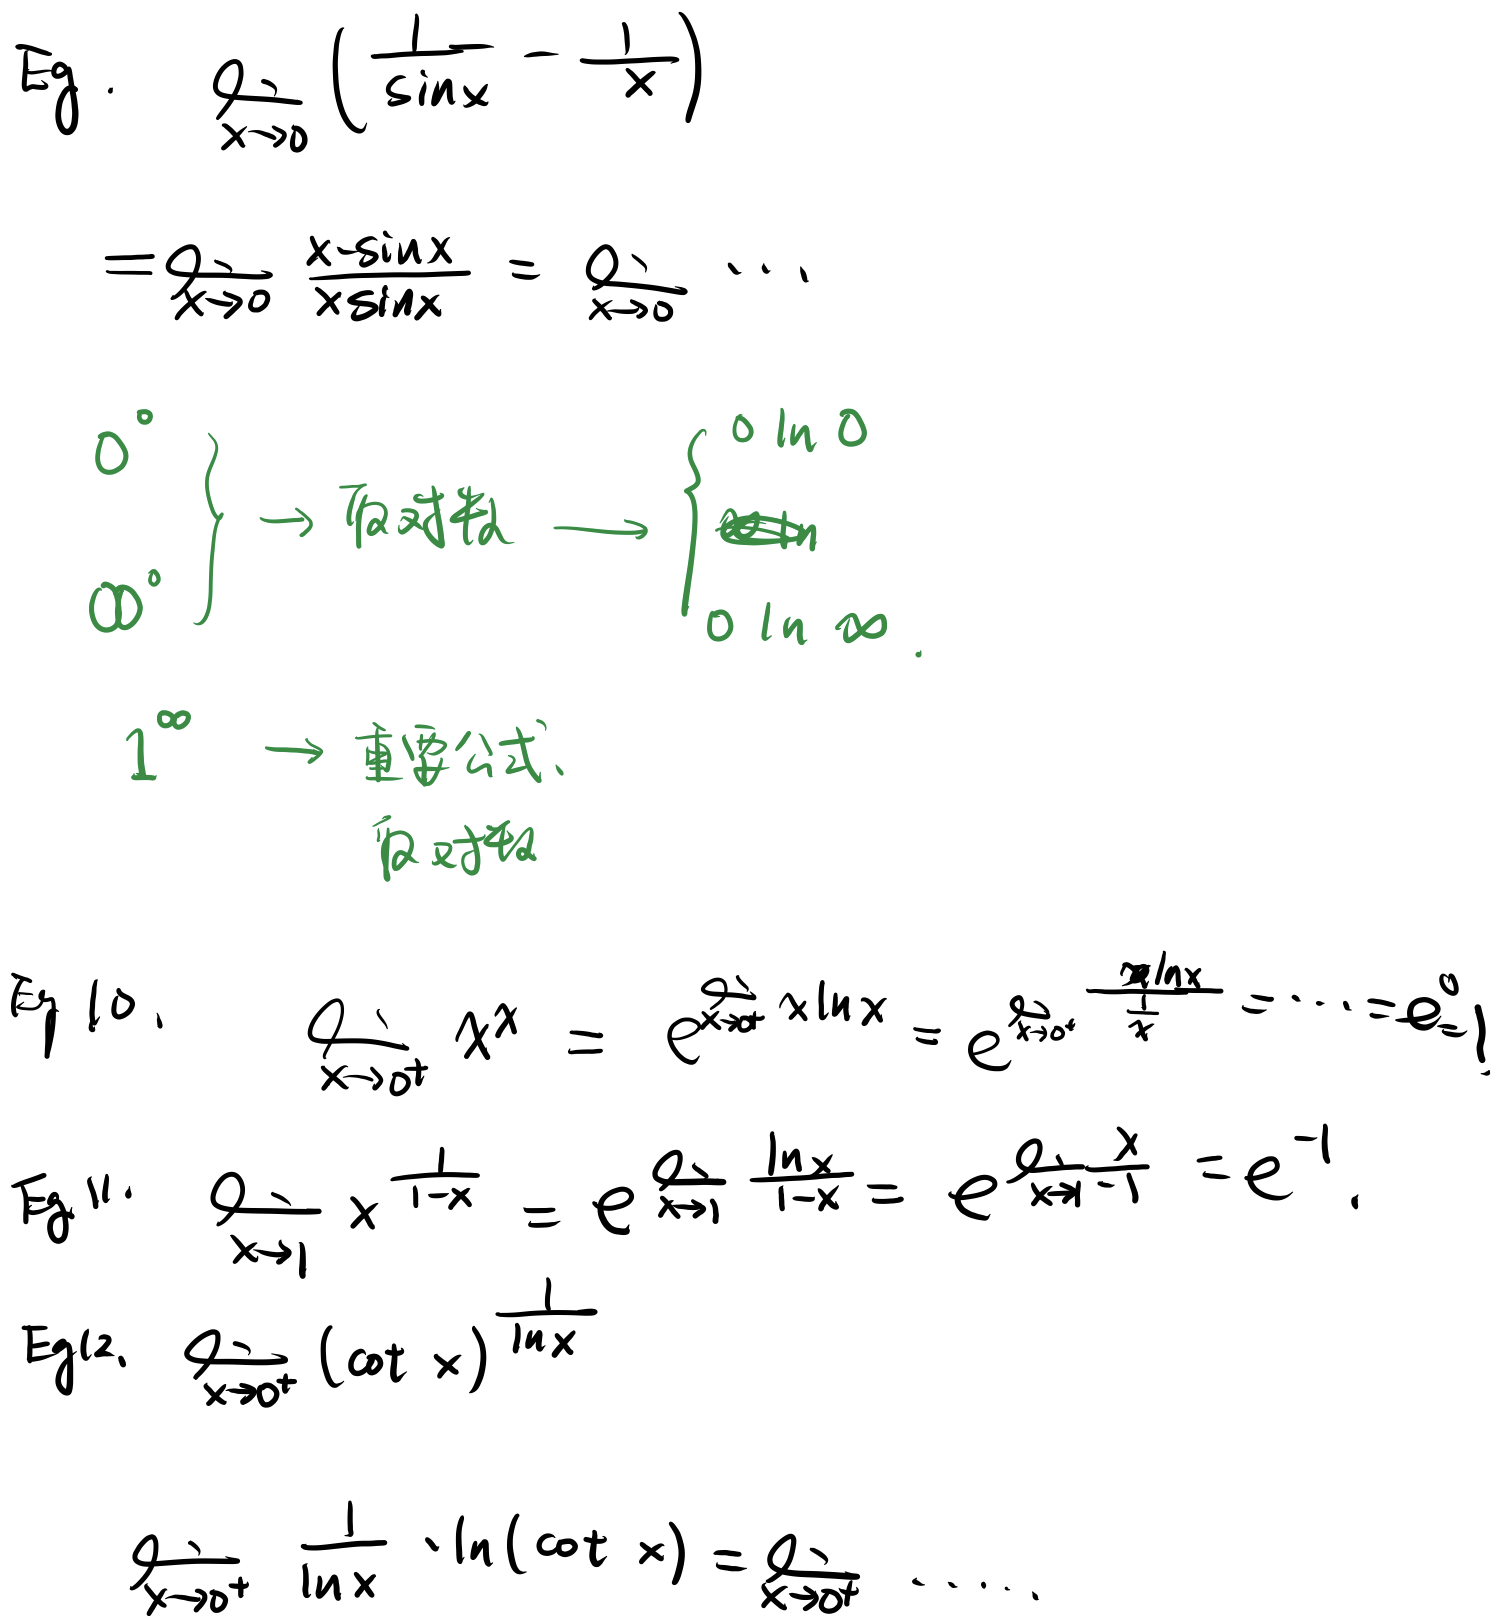 Eg. lim x→0 (1/sinx - 1/x)
= lim x→0 (x-sinx)/(xsinx) = lim x→0 ...
0⁰
∞⁰
→ 取对数 →
0 ln 0
0 ln ∞.
1^∞ → 重要公式、
取对数
Eg 10. lim x→0⁺ x^x = e^(lim x→0⁺ xlnx) = e^(lim x→0⁺ lnx/(1/x)) = ... = e⁰ = 1.
Eg 11. lim x→1 x^(1/(1-x)) = e^(lim x→1 lnx/(1-x)) = e^(lim x→1 x/-1) = e^-1.
Eg12. lim x→0⁺ (cot x)^(1/lnx)
lim x→0⁺ 1/lnx · ln(cot x) = lim x→0⁺ .....